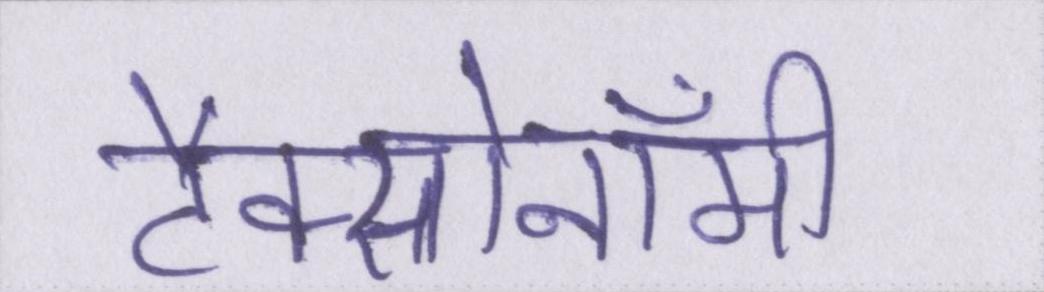 टैक्सोनाँमी